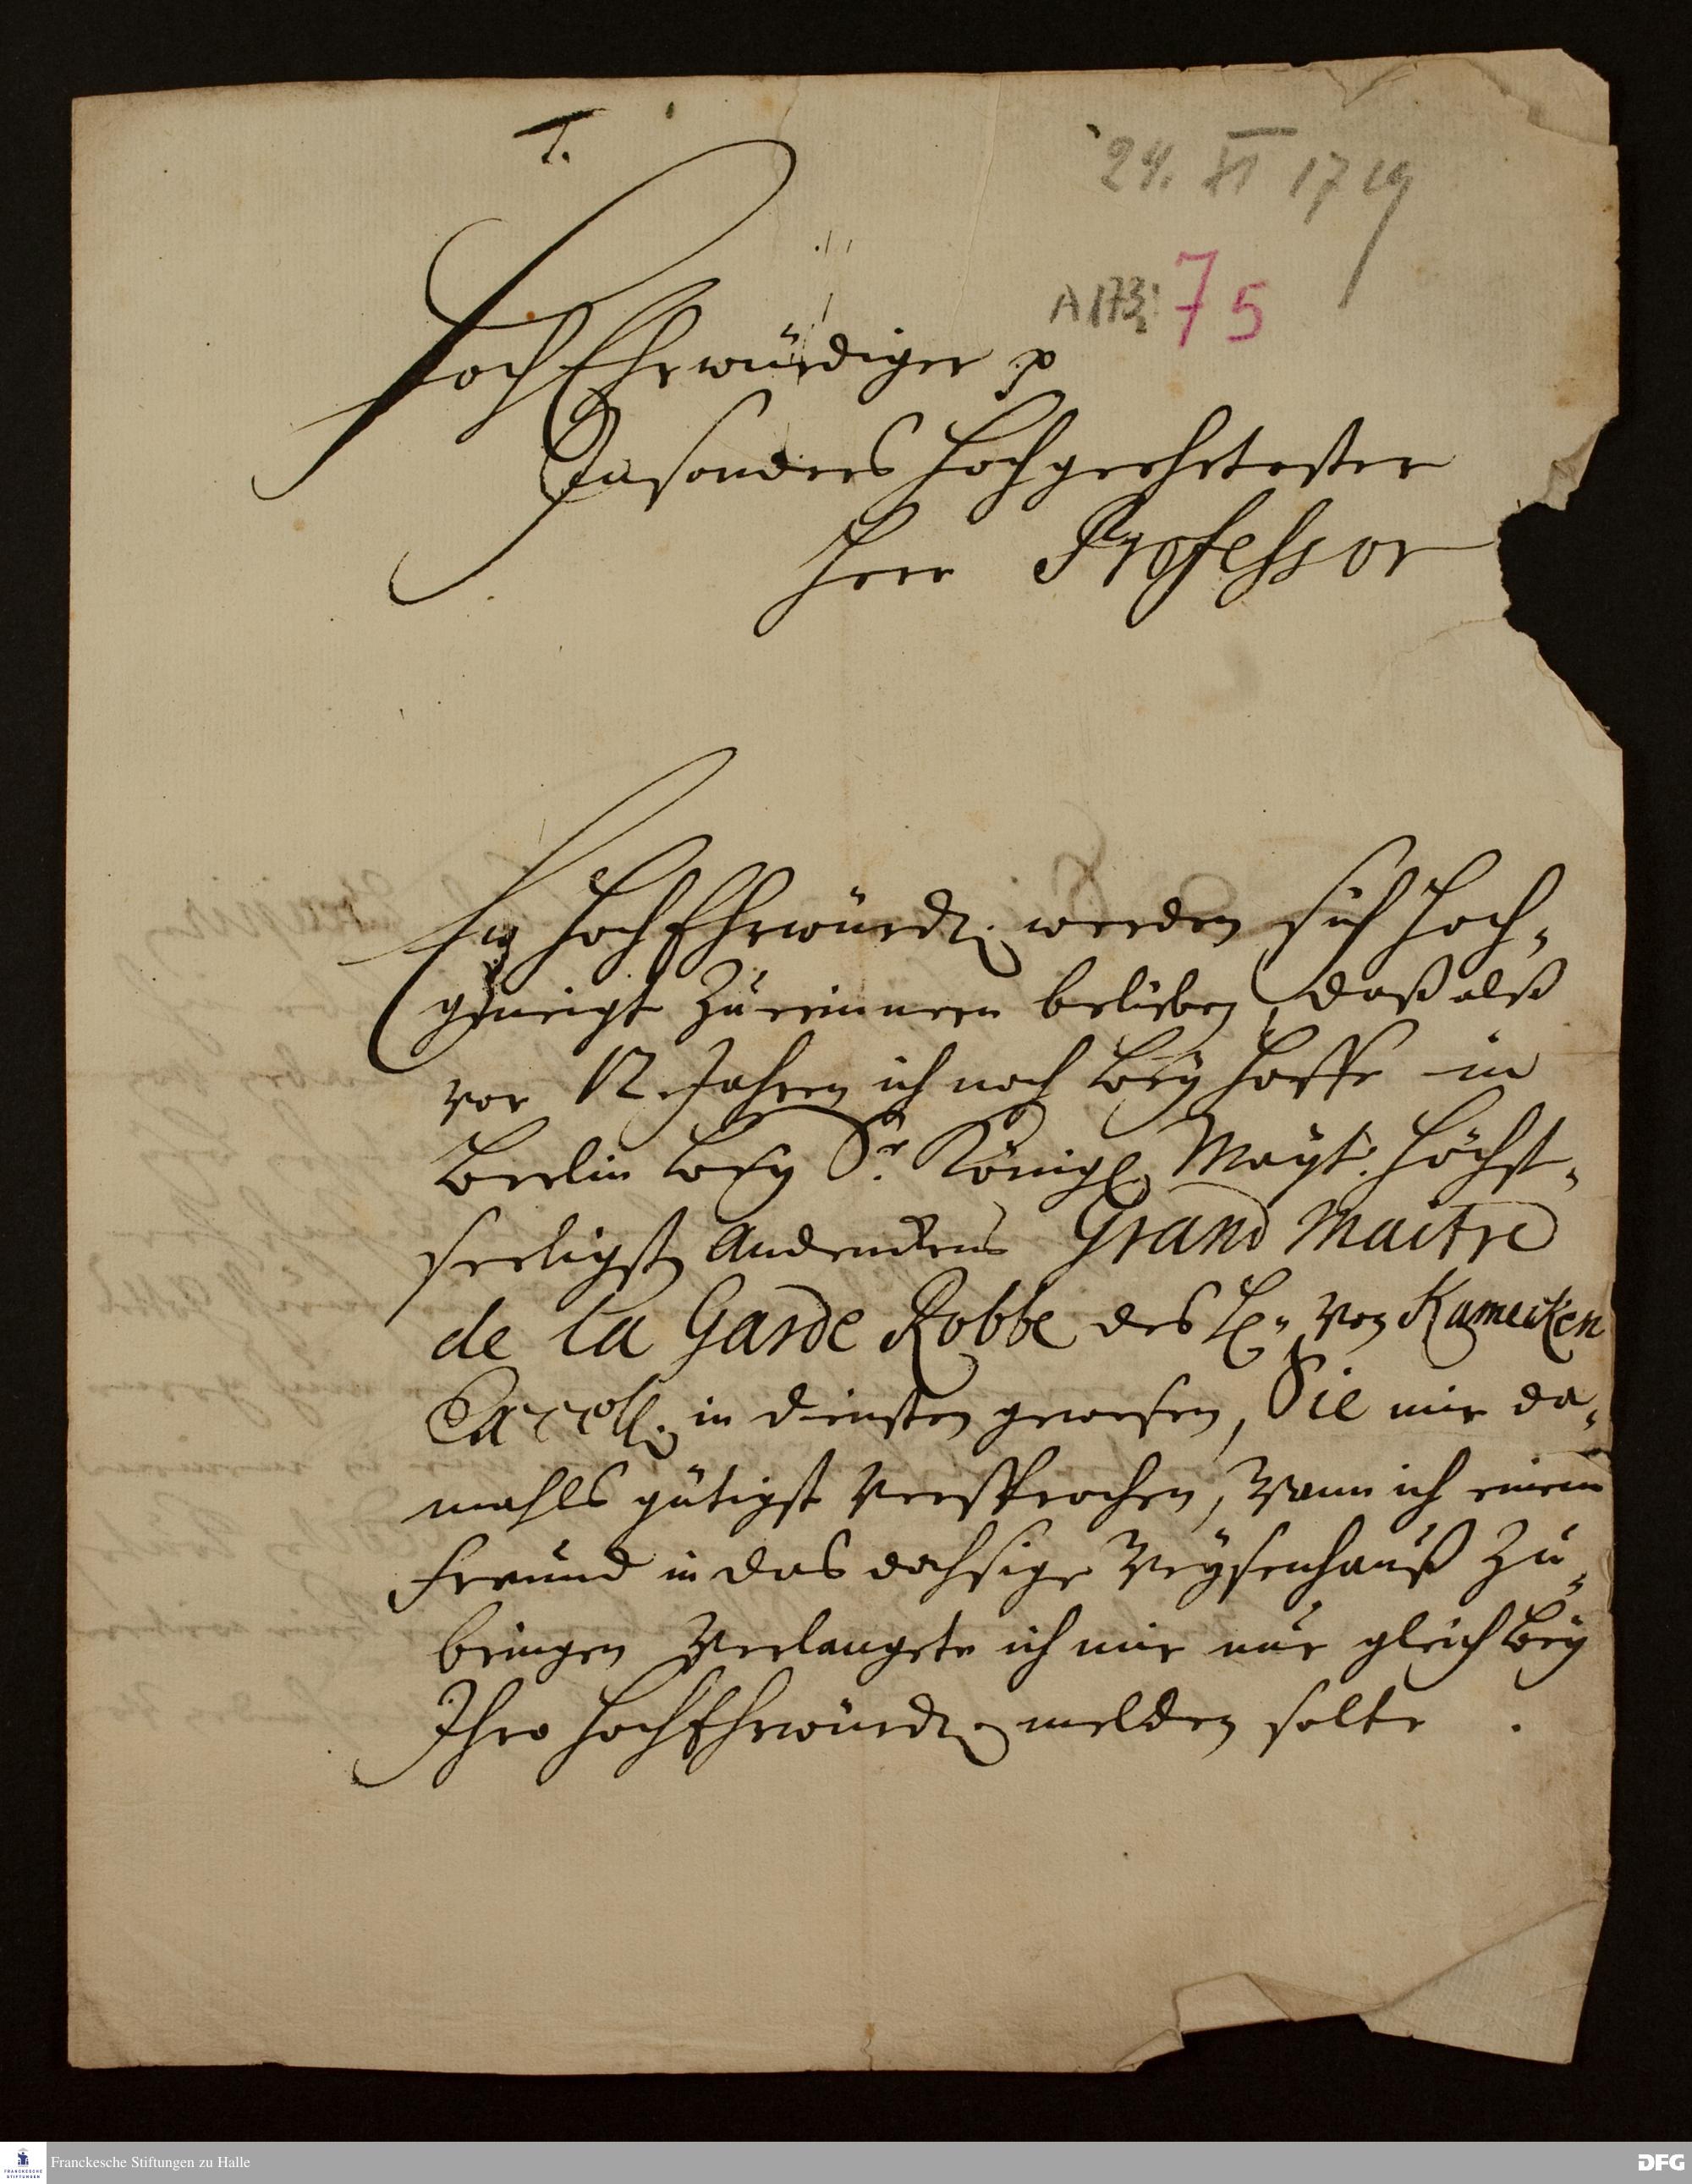 T.
24. XI 1719
A 173: 75
HochEhrwürdiger p
Insonders hochgeehrtester
Herr Professor
Ew HochEhrwürd. werden sich hoch-
geneigt zu erinnern belieben, daß alß
vor 12 Jahren ich noch bey Hoffe in
Berlin bey Sr. Königl. Mayt. höchst-
seeligst Andenckens Grand Maitre
de La Garde Robbe des H. von Kamecken
Excell. in diensten gewesen, Sie mir da-
mahls gütigst versprochen, Wann ich einem
freund in das dasige Weysenhauß zu-
bringen Verlangete ich mir nur gleich bey
Ihro HochEhrwürd. melden solte .
FRANCKESCHE STIFTUNGEN
Franckesche Stiftungen zu Halle
DFG